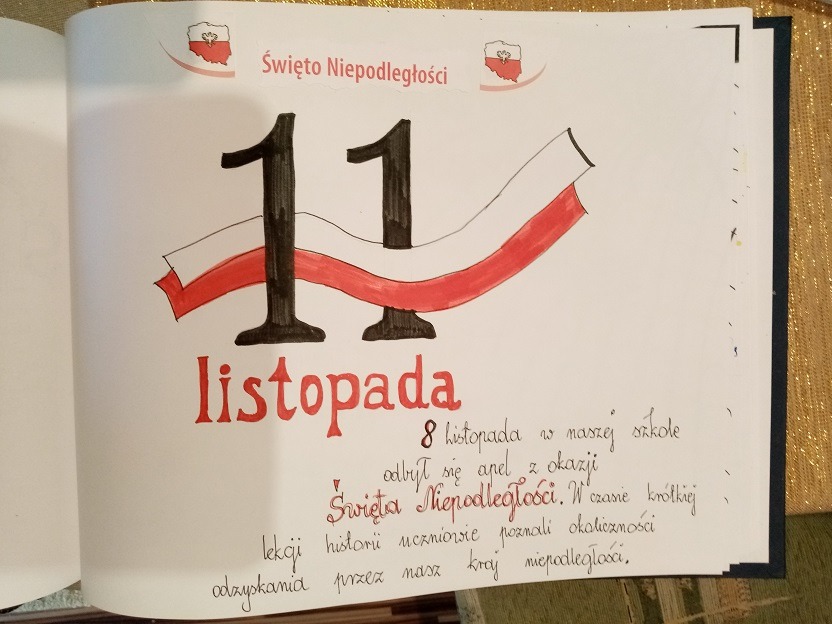 Święto Niepodległości
11
listopada
8 listopada w naszej szkole
odbył się apel z okazji
Święta Niepodległości. W czasie krótkiej
lekcji historii uczniowie poznali okoliczności
odzyskania przez nasz kraj niepodległości.